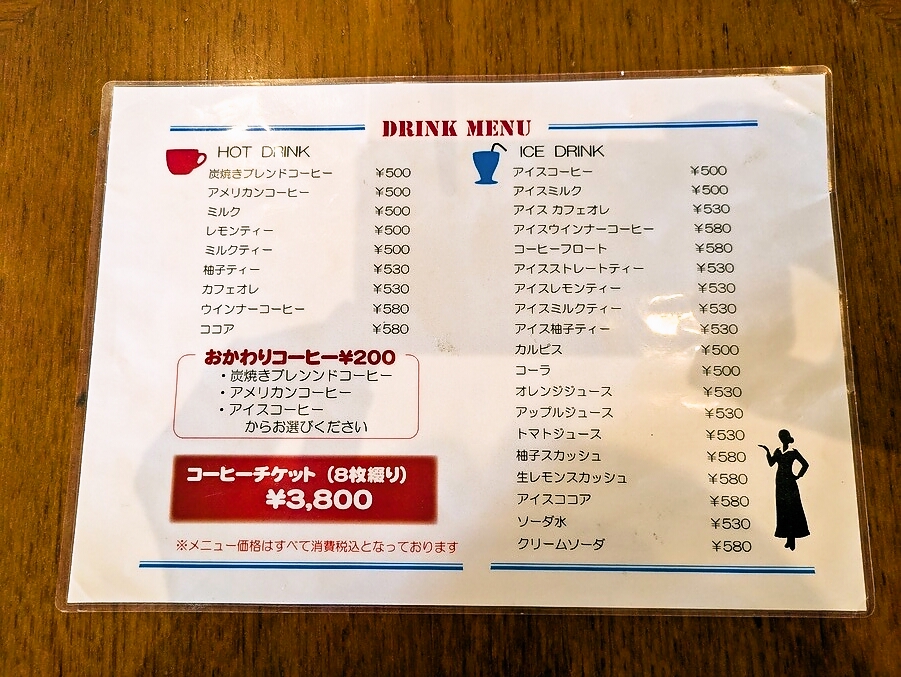 DRINK MENU
HOT DRINK
炭焼きブレンドコーヒー ¥500
アメリカンコーヒー ¥500
ミルク ¥500
レモンティー ¥500
ミルクティー ¥500
柚子ティー ¥530
カフェオレ ¥530
ウインナーコーヒー ¥580
ココア ¥580
おかわりコーヒー¥200
・炭焼きブレンンドコーヒー
・アメリカンコーヒー
・アイスコーヒー
からお選びください
コーヒーチケット（8枚綴り）
¥3,800
※メニュー価格はすべて消費税込となっております
ICE DRINK
アイスコーヒー ¥500
アイスミルク ¥500
アイス カフェオレ ¥530
アイスウインナーコーヒー ¥580
コーヒーフロート ¥580
アイスストレートティー ¥530
アイスレモンティー ¥530
アイスミルクティー ¥530
アイス柚子ティー ¥530
カルピス ¥500
コーラ ¥500
オレンジジュース ¥530
アップルジュース ¥530
トマトジュース ¥530
柚子スカッシュ ¥580
生レモンスカッシュ ¥580
アイスココア ¥580
ソーダ水 ¥530
クリームソーダ ¥580